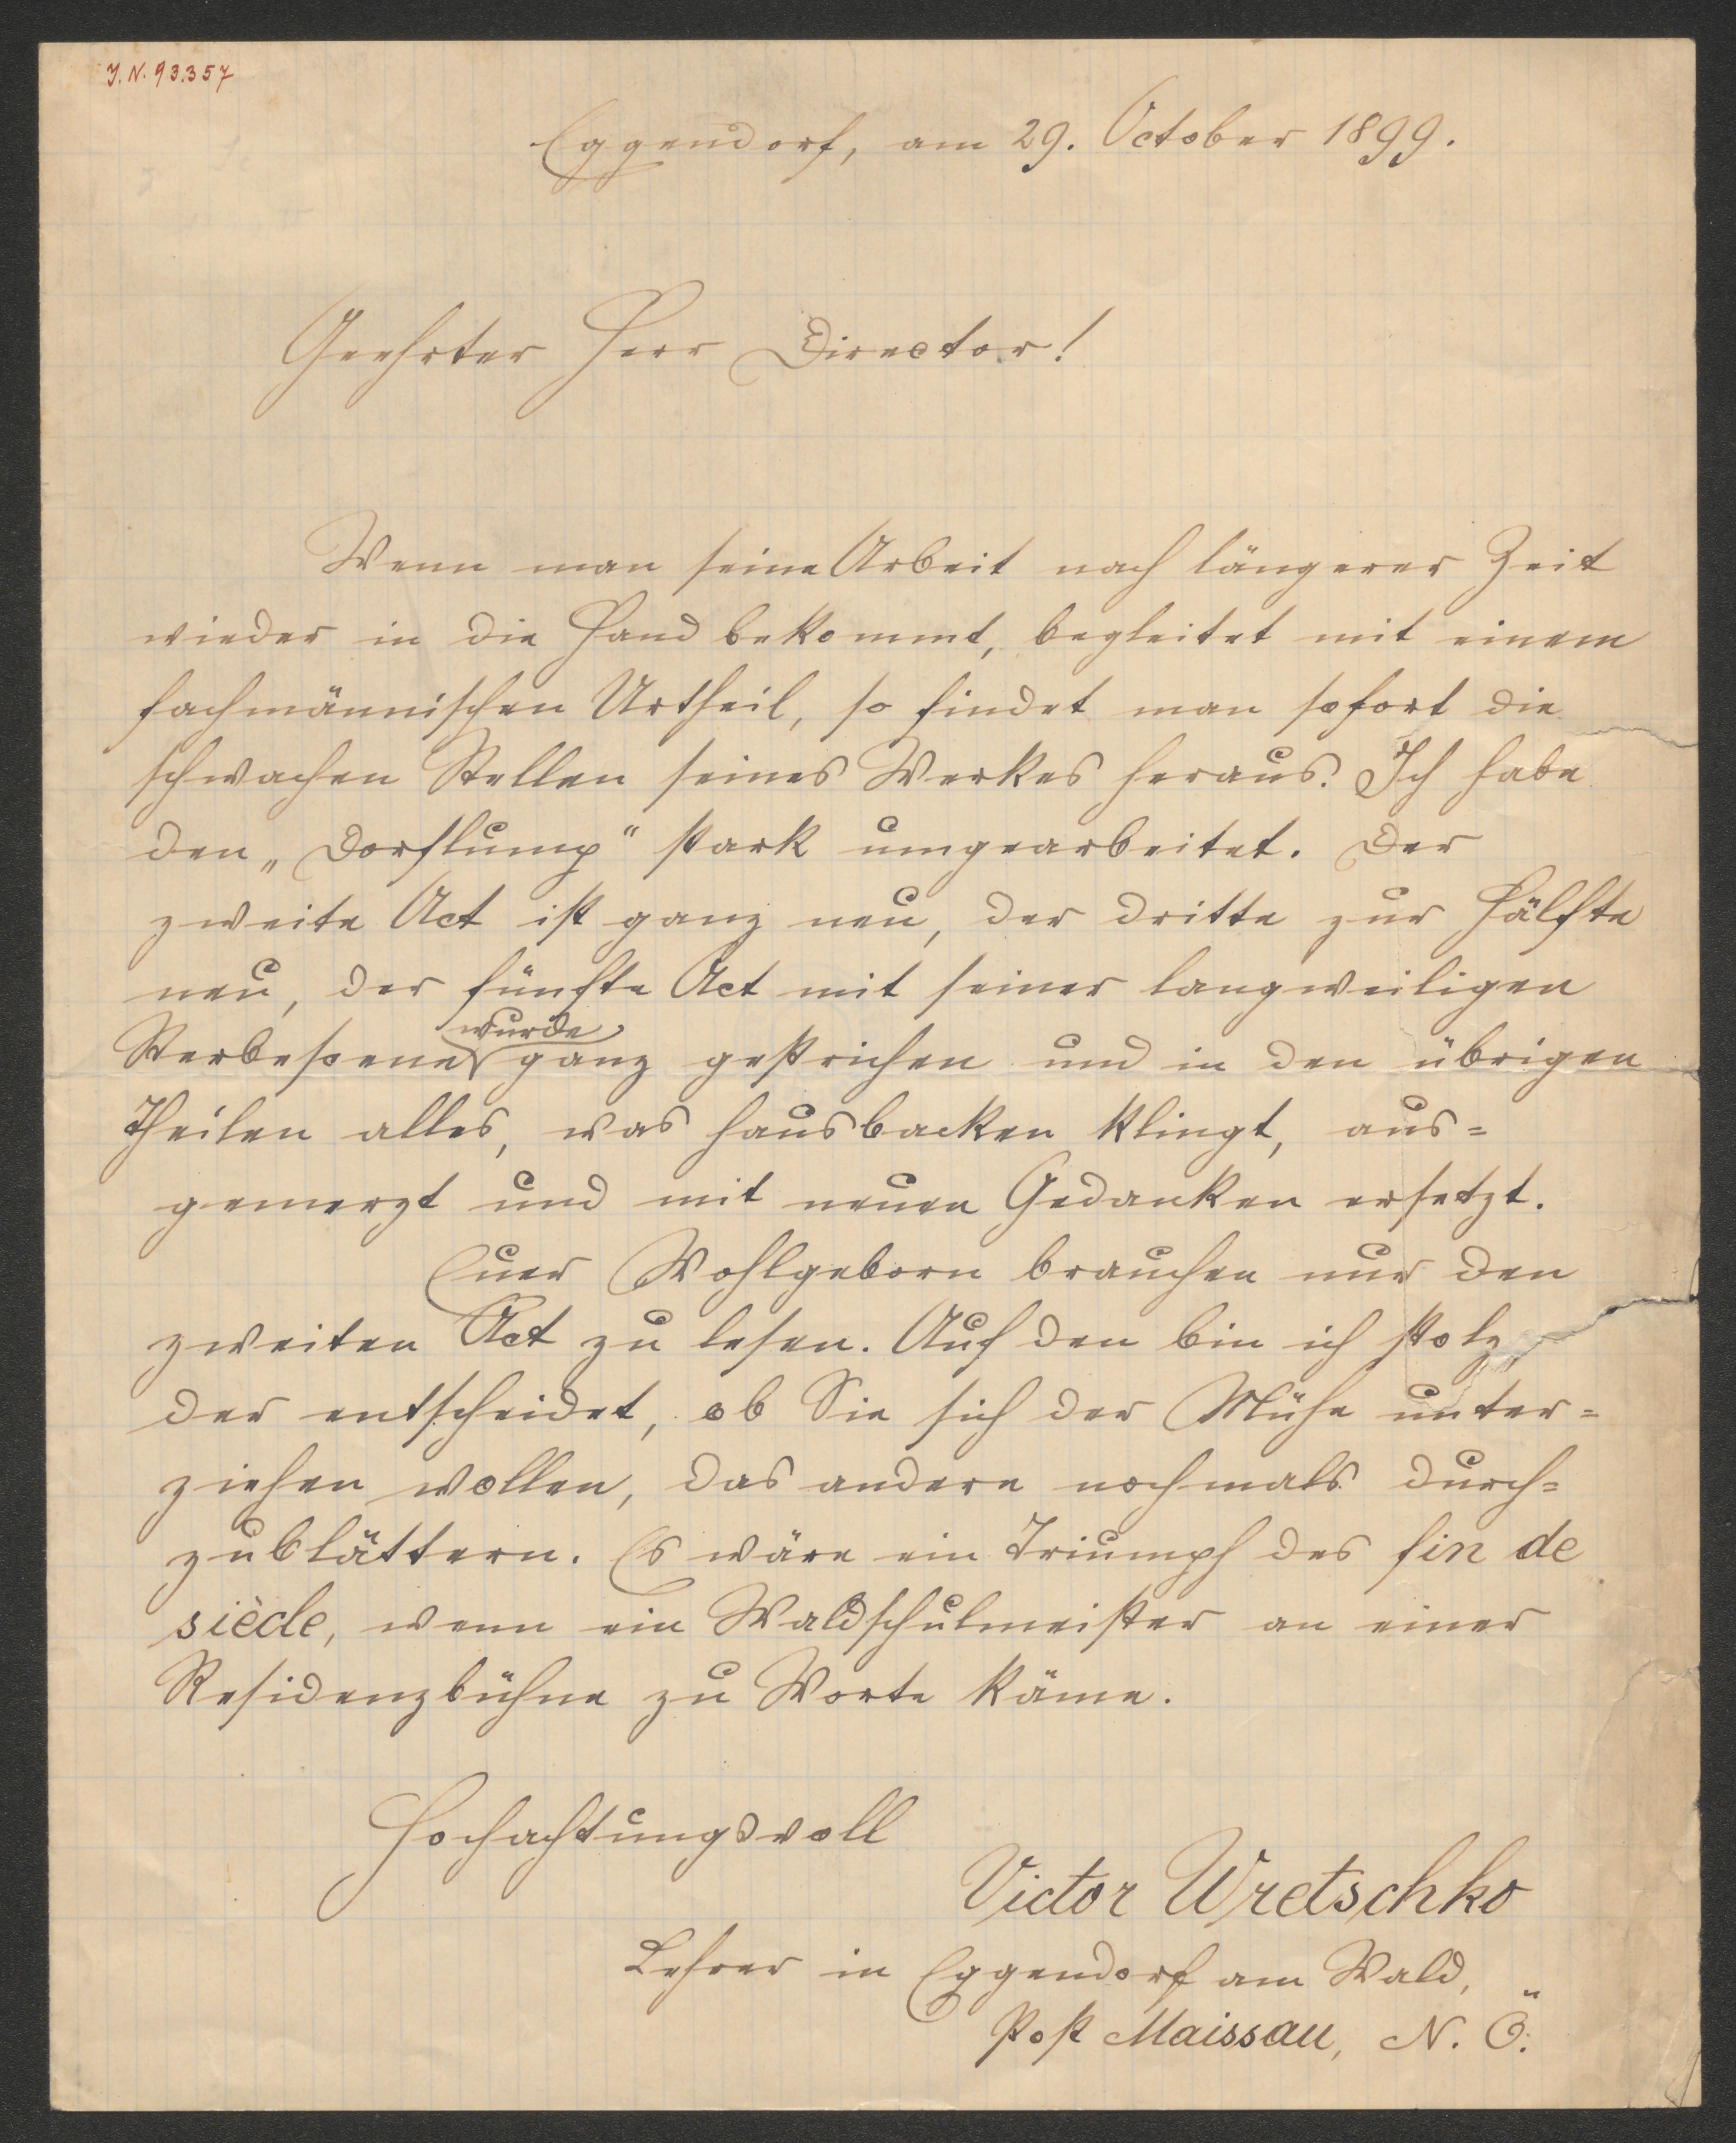 J. N. 93.357
Eggendorf, am 29. October 1899.
Geehrter Herr Director!
Wenn man seine Arbeit nach längerer Zeit
wieder in die Hand bekommt, begleitet mit einem
fachmännischen Urtheil, so findet man sofort die
schwachen Stellen seines Werkes heraus. Ich habe
den „Dorflump“ stark umgearbeitet. Der
zweite Act ist ganz neu, der dritte zur Hälfte
neu, der fünfte Act mit seiner langweiligen
wurde
Sterbescene ganz gestrichen und in den übrigen
Theilen alles, was hausbacken klingt, aus=
gemerzt und mit neuen Gedanken ersetzt.
Euer Wohlgeborn brauchen nur den
zweiten Act zu lesen. Auf den bin ich stolz,
der entscheidet, ob Sie sich der Mühe unter=
ziehen wollen, das andere nochmals durch=
zublättern. Es wäre ein Triumph des fin de
siècle, wenn ein Waldschulmeister an einer
Residenzbühne zu Worte käme.
Hochachtungsvoll
Victor Wretschko
Lehrer in Eggendorf am Wald,
Post Maissau, N. Ö.